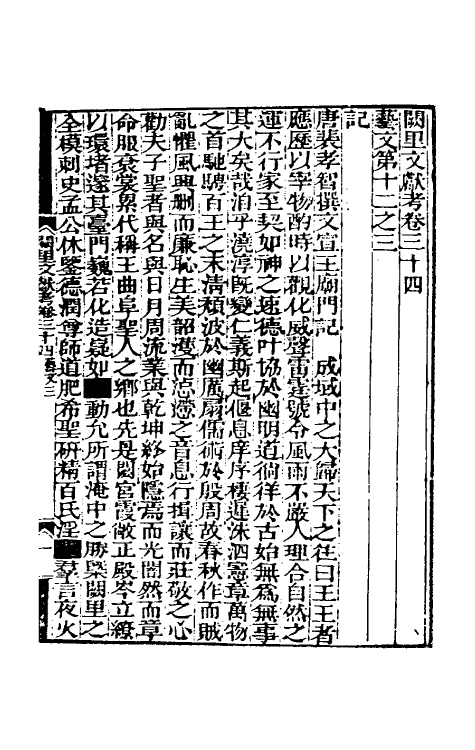 闕里文獻考卷三十四
藝文第十二之三
記
唐裴孝智撰文宣王廟門記　成域中之大歸天下之往曰王王者
應歷以宰物酌時以觀化威聲雷霆號令風雨不嚴人理合自然之
運不行家至契如神之速德叶協於幽明道徜徉於古始無爲無事
其大矣哉洎乎澆淳既變仁義斯起偃息庠序棲遲洙泗憲章萬物
之首馳騁百王之末清頹波於幽厲扇儒術於殷周故春秋作而賊
亂懼風興删而廉恥生美韶濩而惉懘之音息行揖讓而莊敬之心
勸夫子聖者與名與日月周流業與乾坤終始隱焉而光闇然而章
命服衮裳累代稱王曲阜聖人之鄉也先是閟宮霞敞正殿岑立繚
以環堵邃其臺門巍若化造嶷如■動允所謂淹中之勝槩闕里之
全模刺史孟公休鑒德潤尊師道肥希聖研精百氏淫■羣言夜火
闕里文獻考卷三十四藝文三
一